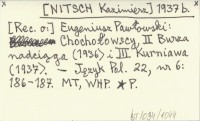 [NITSCH Kazimierz] 1937 b.
[Rec. o:] Eugeniusz Pawłowski:
Chochołowscy, II Burza
nadciąga (1936) i III Kurniawa
(1937). – Język Pol. 22, nr 6:
186-187. MT, WHP. *P.